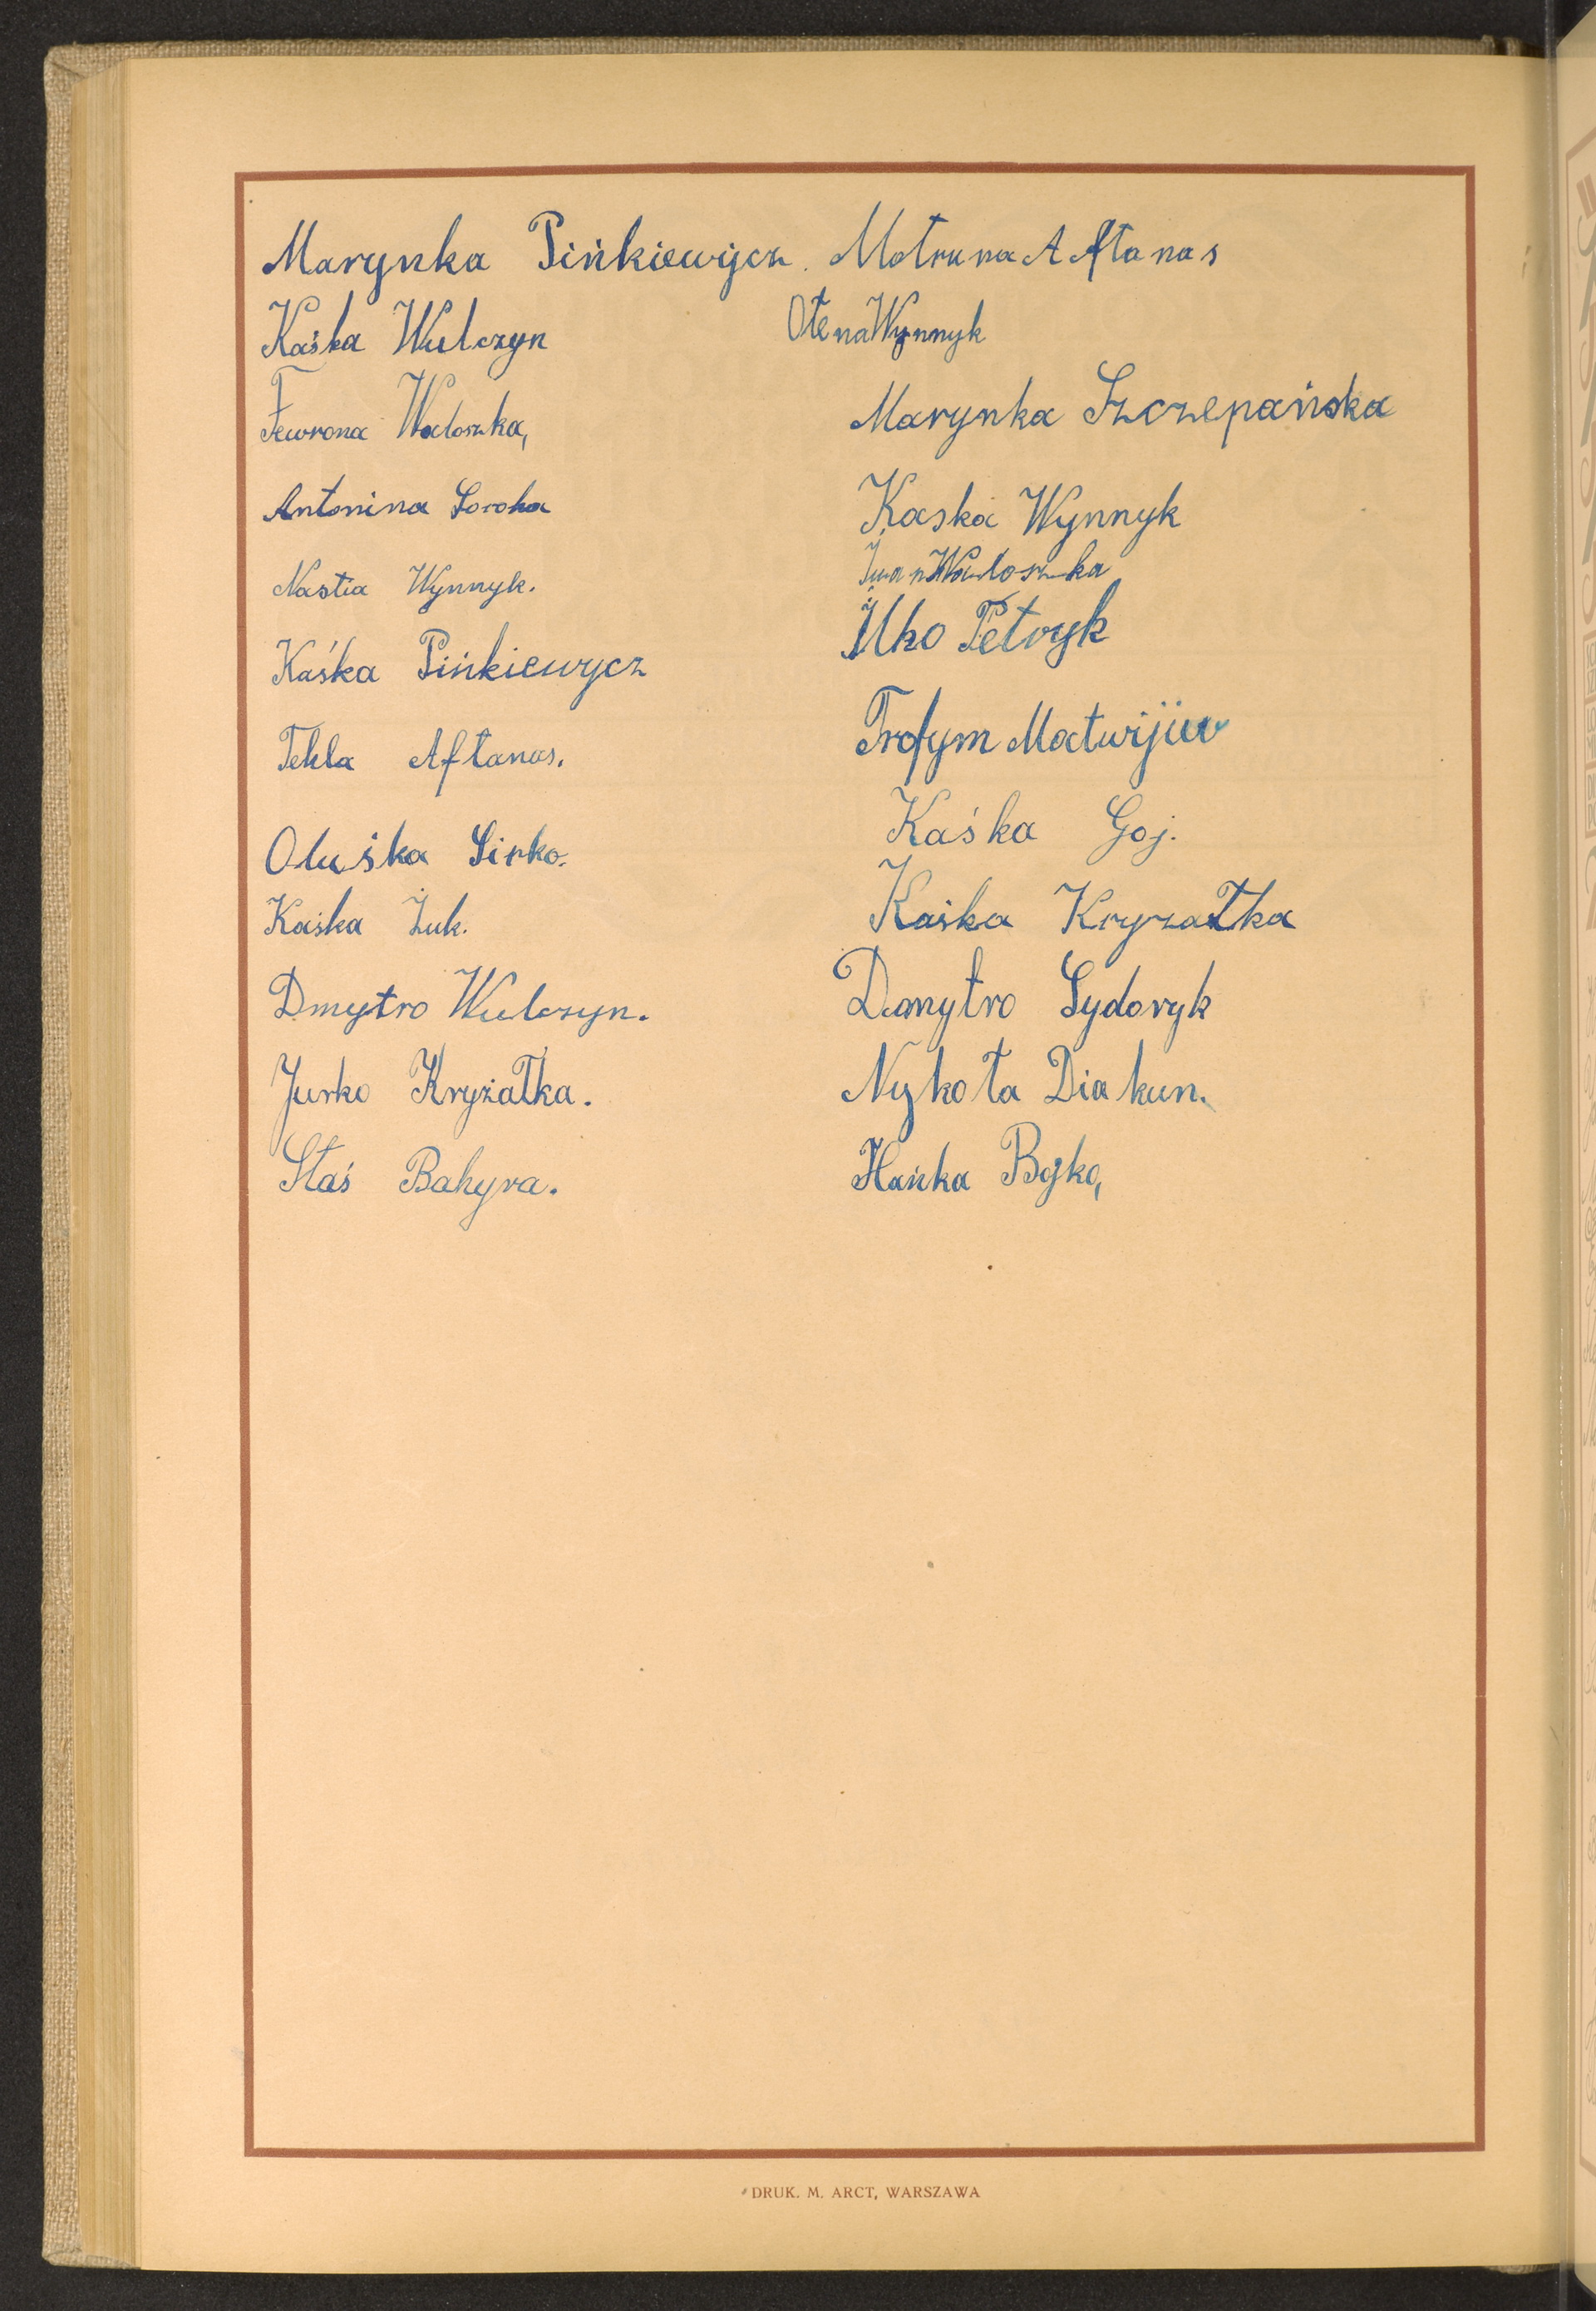 Marynka Pińkiewycz.
Kaśka Wulczyn
Fewrona Wołoszka,
Antonina Soroka
Nastia Wynnyk.
Kaśka Pińkiewycz
Tekla Aftanas.
Oluśka Sirko.
Kaśka Żuk.
Dmytro Wulczyn.
Jurko Kryżałka.
Staś Bahyra.
Motruna Aftanas
Ołena Wynnyk
Marynka Szczepańska
Kaśka Wynnyk
Iwan Wołoszka
Ilko Petryk
Trofym Matwijiw
Kaśka Goj.
Kaśka Kryzałka
Dmytro Sydoryk
Nykoła Diakun.
Hańka Bojko,
DRUK. M. ARCT, WARSZAWA